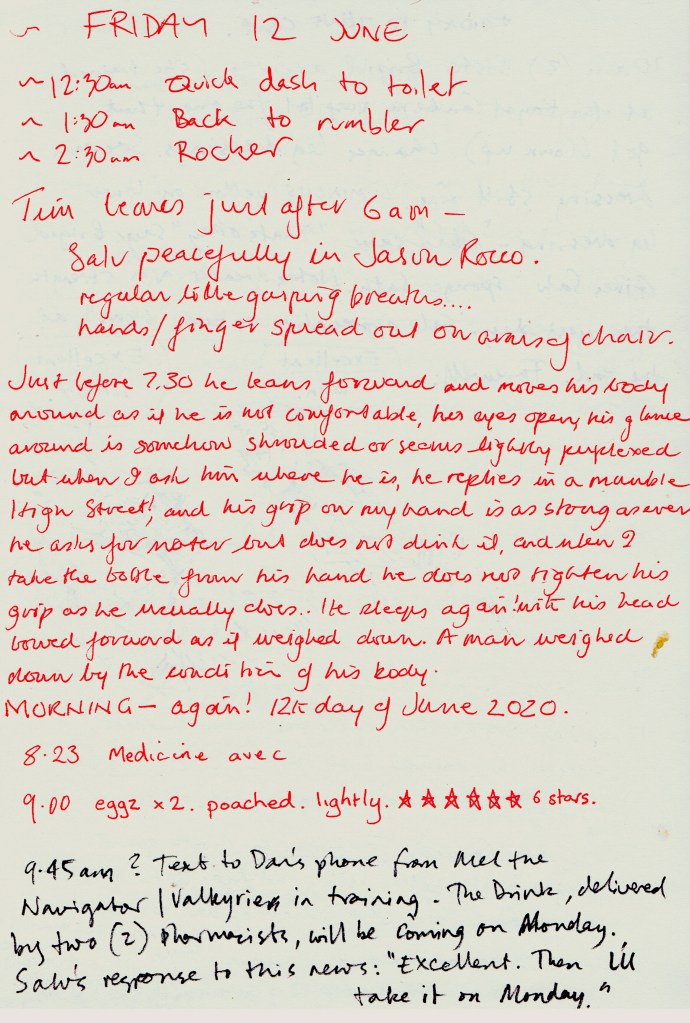 ~ FRIDAY 12 JUNE
~ 12:30am Quick dash to toilet
~ 1:30am Back to rumbler
~ 2:30am Rocker
Tim leaves just after 6am —
Salv peacefully in Jason Rocco.
regular little gasping breaths....
hands/finger spread out on arms of chair.
Just before 7.30 he leans forward and moves his body
around as if he is not comfortable, his eyes open, his glance
around is somehow shrouded or seems lightly perplexed
but when I ask him where he is, he replies in a mumble
'High Street', and his grip on my hand is as strong as ever
he asks for water but does not drink it, and when I
take the bottle from his hand he does not tighten his
grip as he usually does.. He sleeps again! with his head
bowed forward as if weighed down. A man weighed
down by the condition of his body.
MORNING — again! 12th day of June 2020.
8.23 Medicine avec
9.00 eggz x 2. poached. lightly. ☆☆☆☆☆☆ 6 stars.
9.45am ? Text to Dan's phone from Mel the
Navigator | Valkyries in training. The Drink, delivered
by two (2) pharmacists, will be coming on Monday.
Salv's response to this news: "Excellent. Then I'll
take it on Monday."